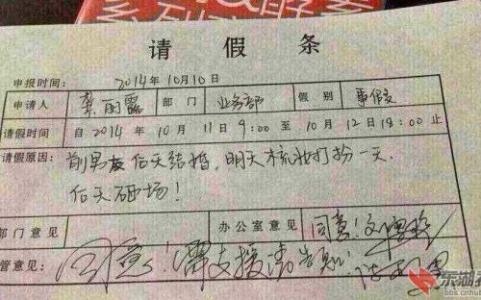 请假条
申报时间: 2014年10月10日
申请人 龚丽露 部门 业务部 假别 事假
请假时间 自2014年10月11日9:00至10月12日18:00止
请假原因: 前男友后天结婚,明天梳妆打扮一天.
后天砸场!
部门意见 办公室意见 同意!
管意见: 同意!需支援请告知!
东湖
bbs.cnhub